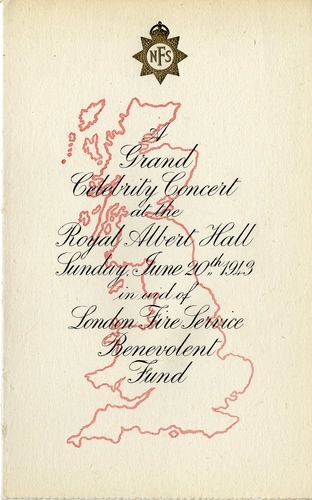 NFS
A
Grand
Celebrity Concert
at the
Royal Albert Hall
Sunday, June 20th 1943
in aid of
London Fire Service
Benevolent
Fund